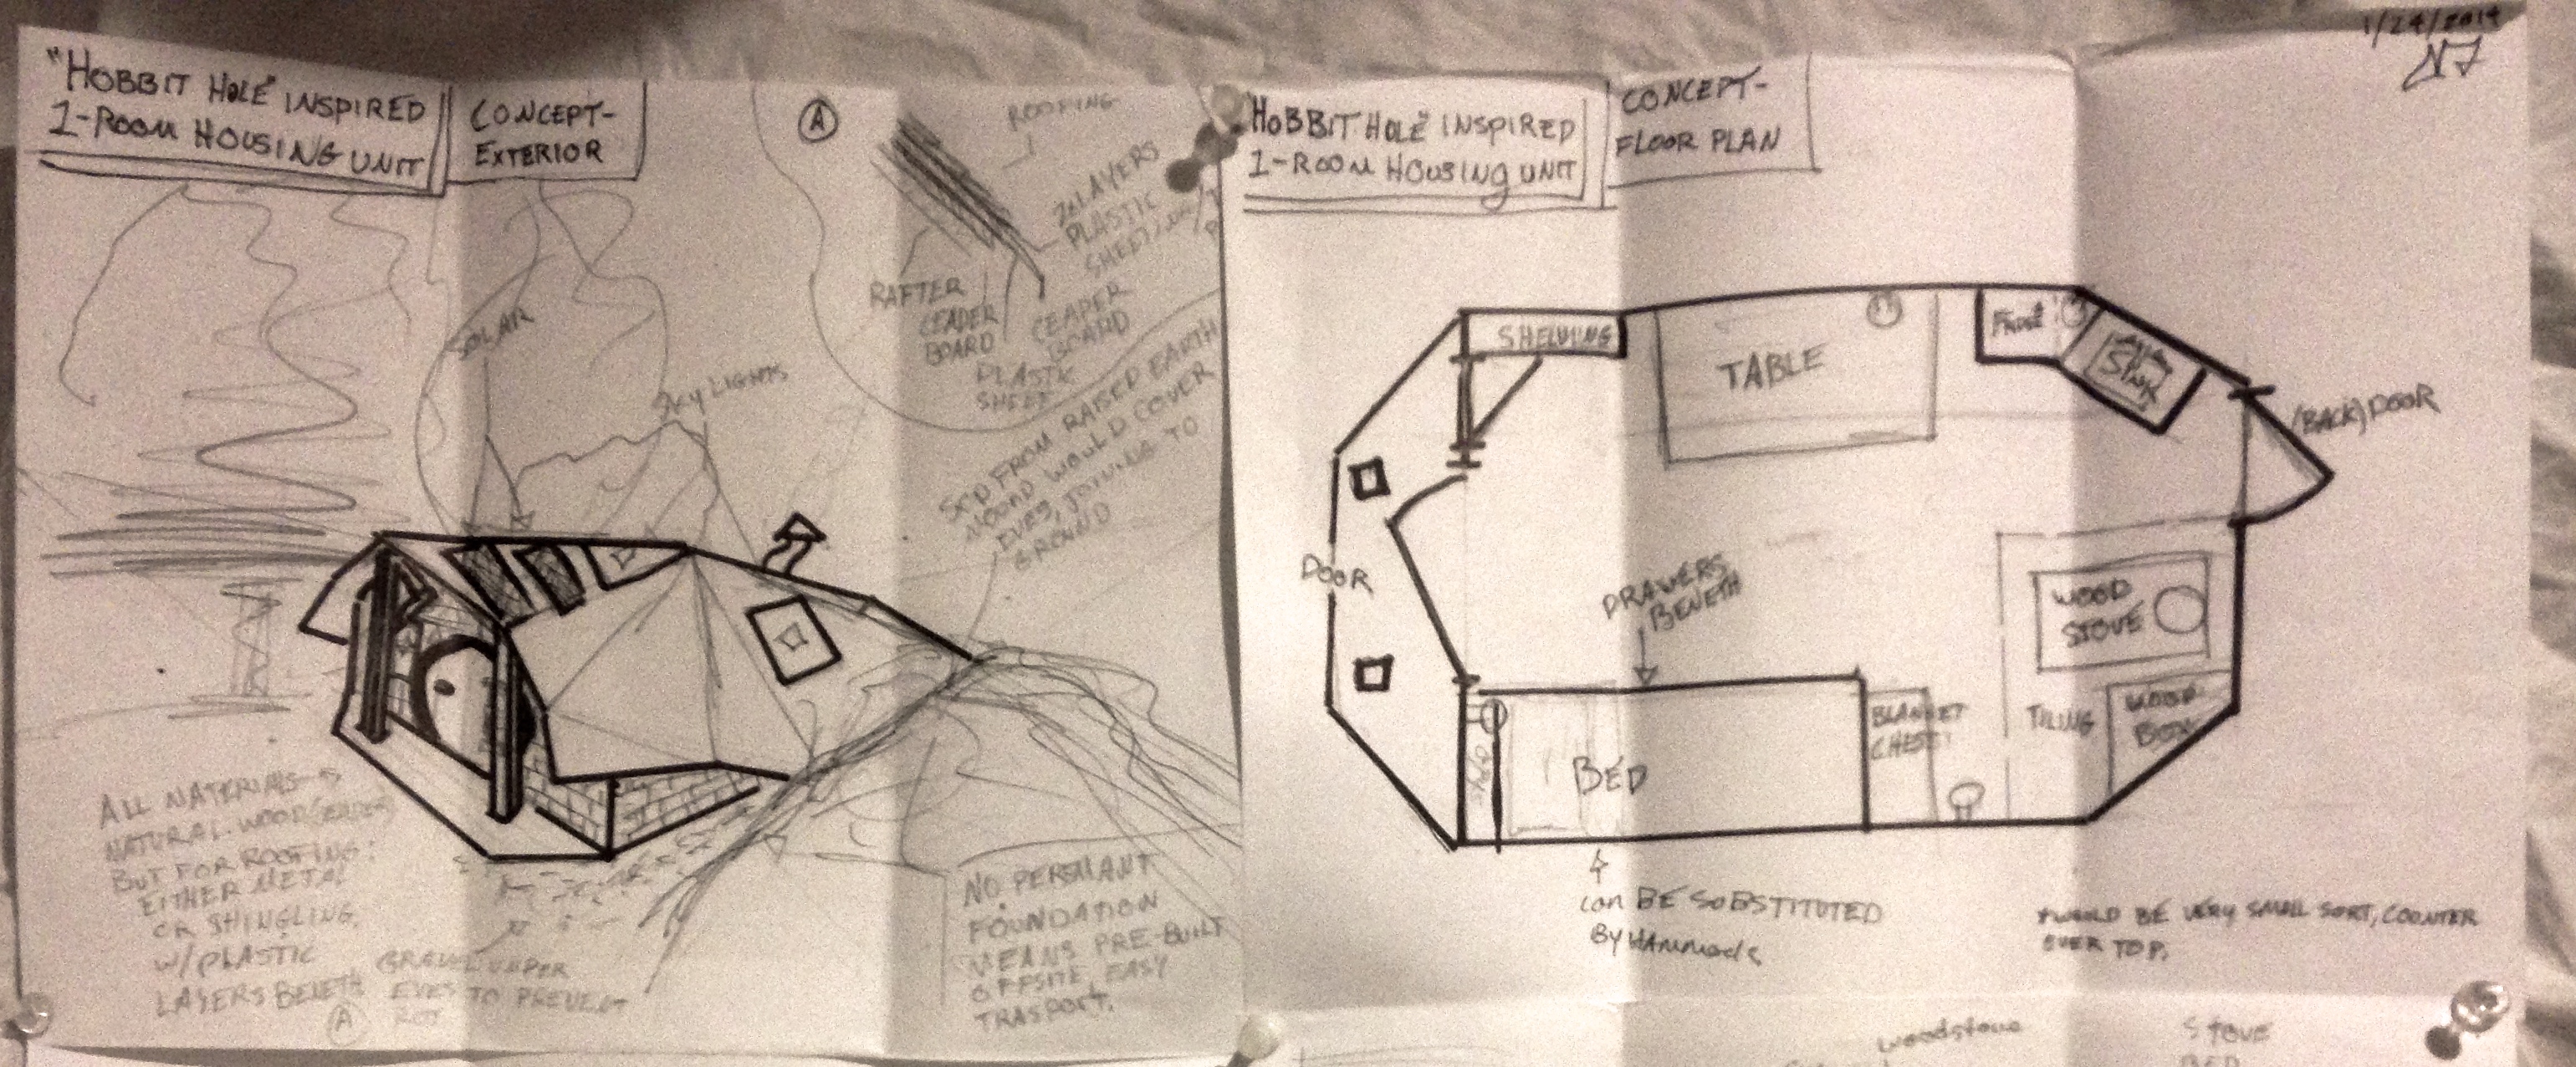 "HOBBIT HOLE" INSPIRED
1-ROOM HOUSING UNIT
CONCEPT-
EXTERIOR
A
ROOFING
2 LAYERS
PLASTIC
RAFTER
CEADER
BOARD
PLASTIC
SHEET
CEAPER
BOARD
SOLAR
SKY LIGHTS
SOD FROM RAISED EARTH
MOUND WOULD COVER
EVES, JOINING TO
GROUND
ALL MATERIALS
NATURAL-WOOD
BUT FOR ROOFING:
EITHER METAL
OR SHINGLING,
W/PLASTIC
LAYERS BENETH
A
GRAVEL UNDER
EVES TO PREVENT
ROT
NO PERMANT
FOUNDATION
MEANS PRE-BUILT
OFFSITE, EASY
TRASPORT.
1/24/2014
"HOBBIT HOLE" INSPIRED
1-ROOM HOUSING UNIT
CONCEPT-
FLOOR PLAN
SHELVING
TABLE
SINK
(BACK) DOOR
DOOR
DRAWERS
BENETH
WOOD
STOVE
BLANKET
CHEST
TILING
WOOD
BOX
BED
can BE SUBSTITUTED
By HAMMOCK
*WOULD BE VERY SMALL SORT, COUNTER
OVER TOP.
woodstove
STOVE
BED